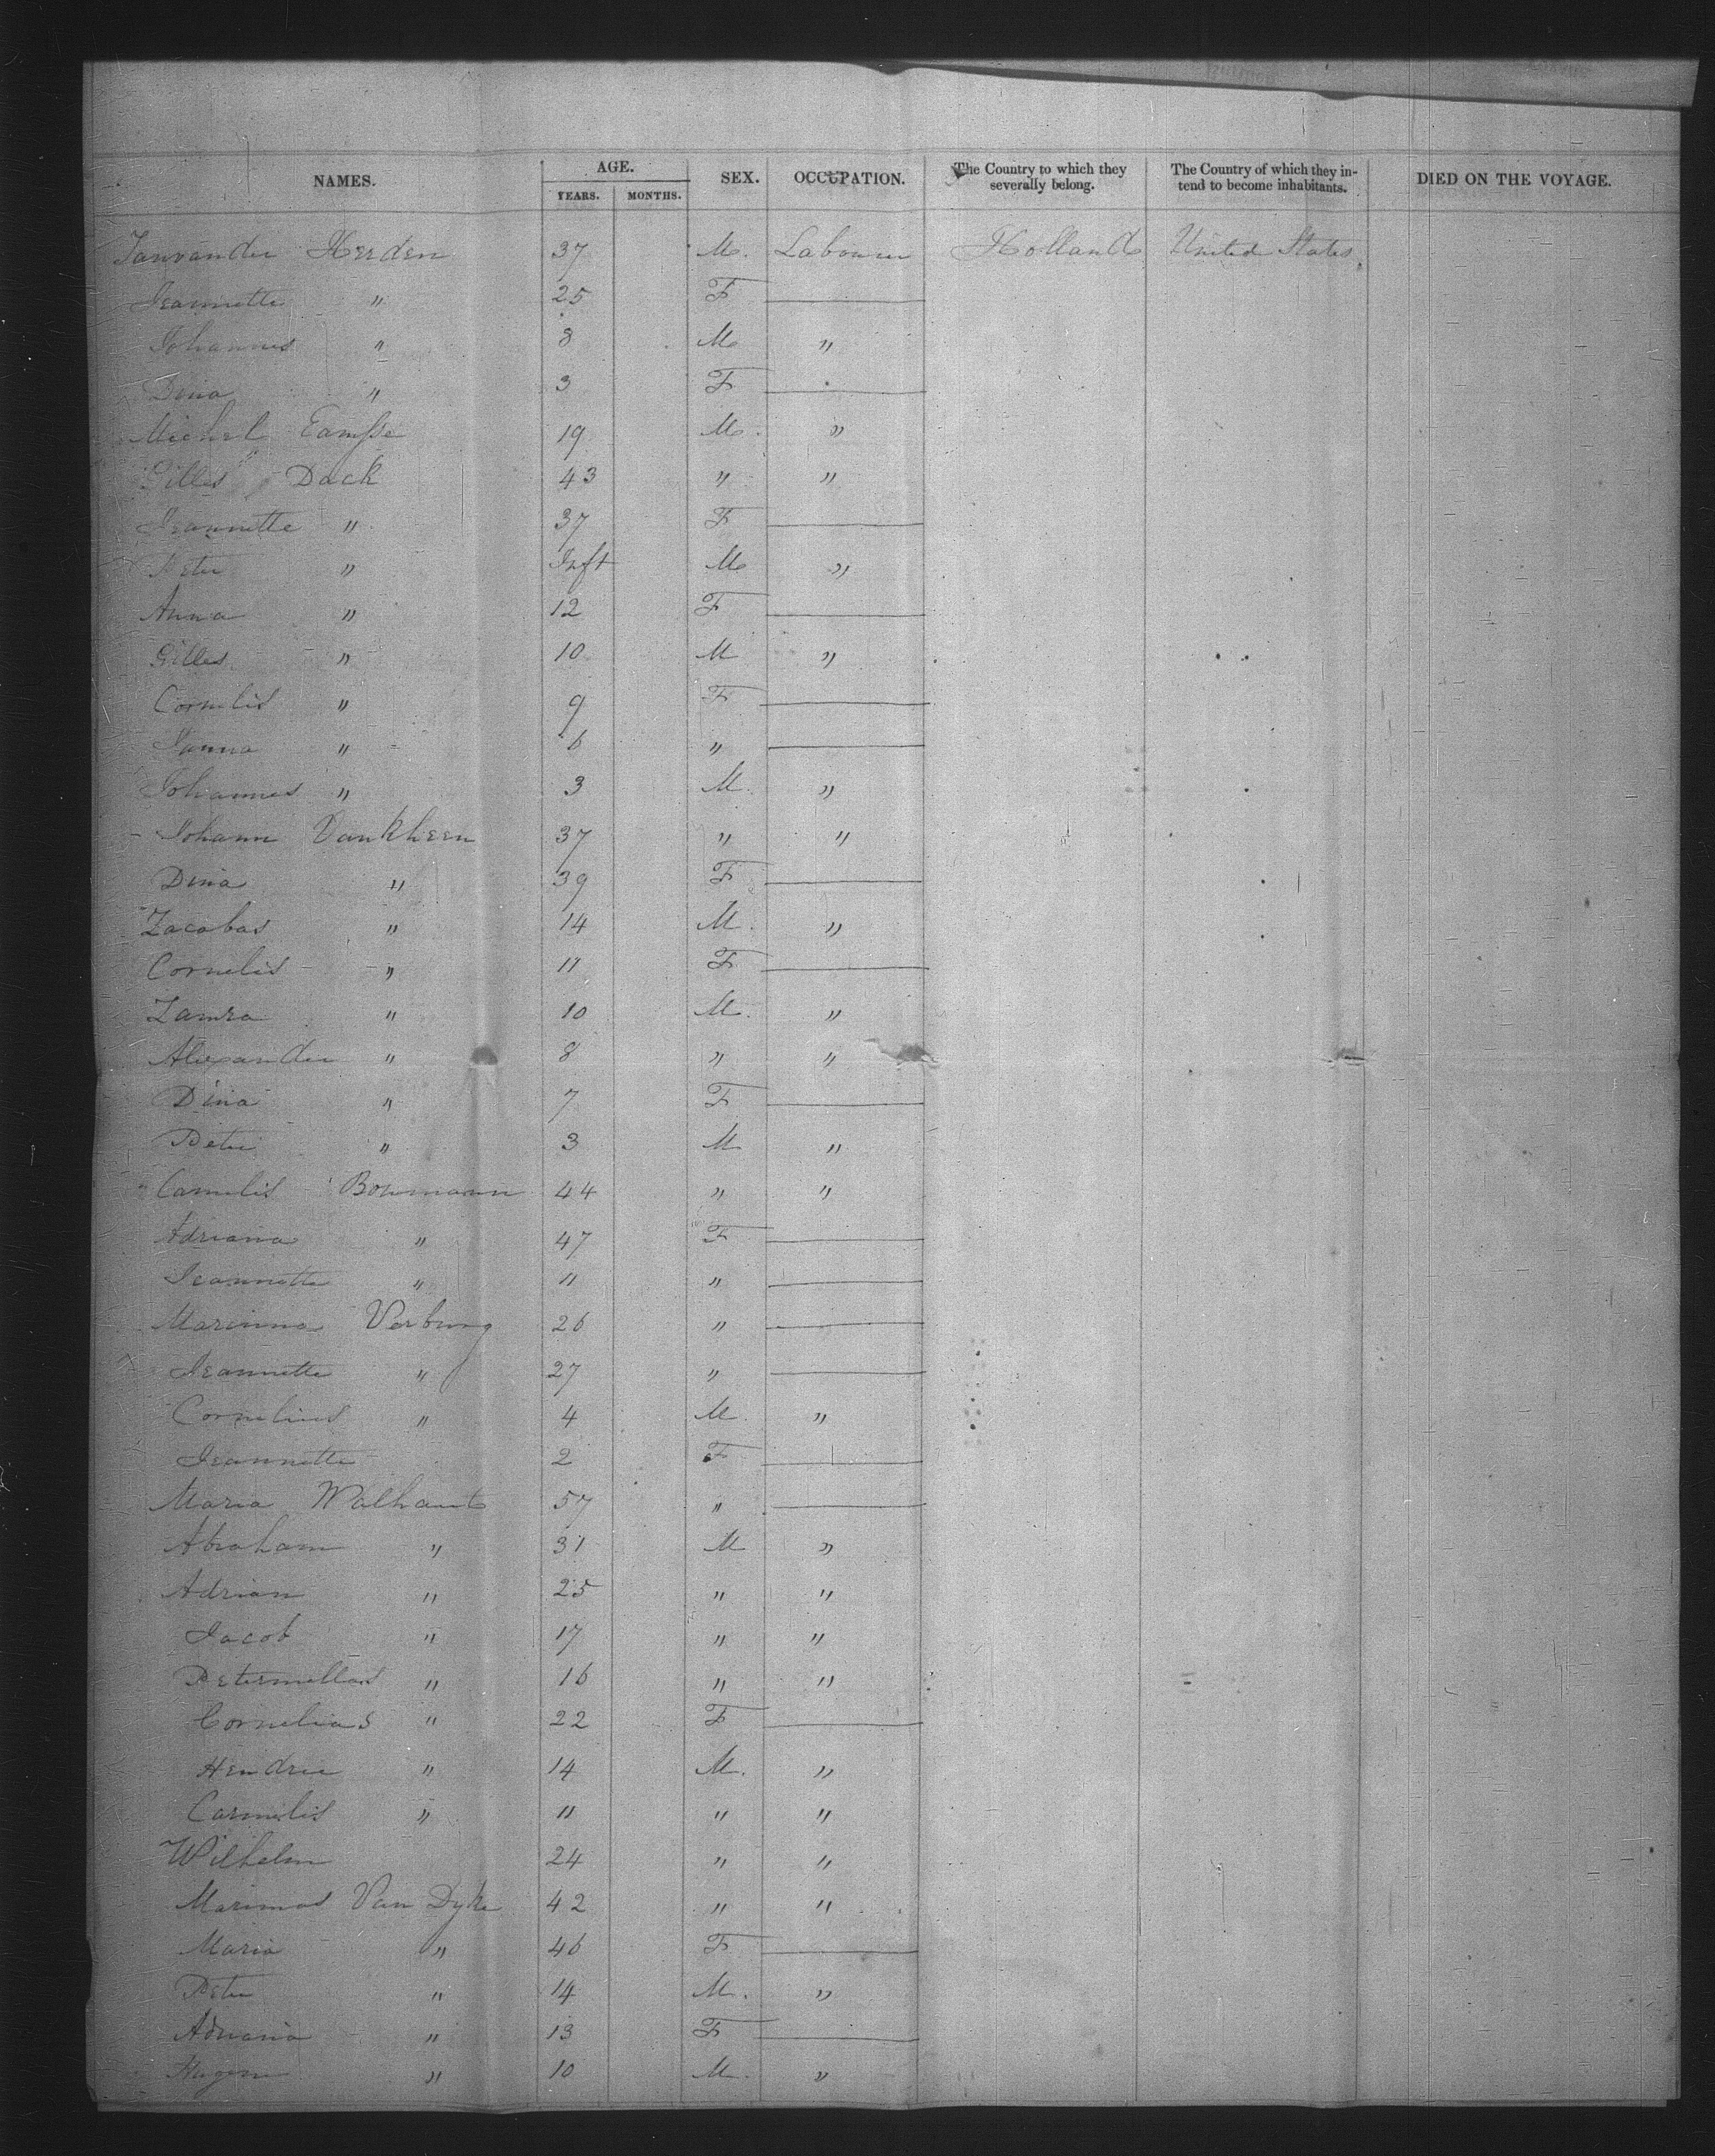 NAMES. AGE. SEX. OCCUPATION. The Country to which they severally belong. The Country of which they intend to become inhabitants. DIED ON THE VOYAGE.
YEARS. MONTHS.
Janvander Herden 37 M. Labourer Holland United States.
Jeannette " 25 F
Johannes " 8 M "
Dina " 3 F
Michel 19 M. "
Gilles Dack 43 " "
Jeannette " 37 F
Peter " Inft M "
Anna " 12 F
Gilles " 10 M "
Cornelis " 9 F
Janna " 6 "
Johannes " 3 M. "
Johann Vankheen 37 " "
Dina " 39 F
Zacobas " 14 M. "
Cornelis " 11 F
Zamra " 10 M. "
Alexander " 8 " "
Dina " 7 F
Peter " 3 M "
Cornelis Bowmann 44 " "
Adriana " 47 F
Jeannette " 11 "
Marinna Verburg 26 "
Jeannette " 27 "
Cornelius " 4 M. "
Jeannette 2 F
Maria Walhaut 57 "
Abraham " 31 M "
Adrian " 25 " "
Jacob " 17 " "
Petermellas " 16 " "
Cornelias " 22 F
Hendric " 14 M. "
Cornelis " 11 " "
Wilhelm 24 " "
Marinos Van Dyke 42 " "
Maria " 46 F
Peter " 14 M. "
Adriana " 13 F
" 10 M. "